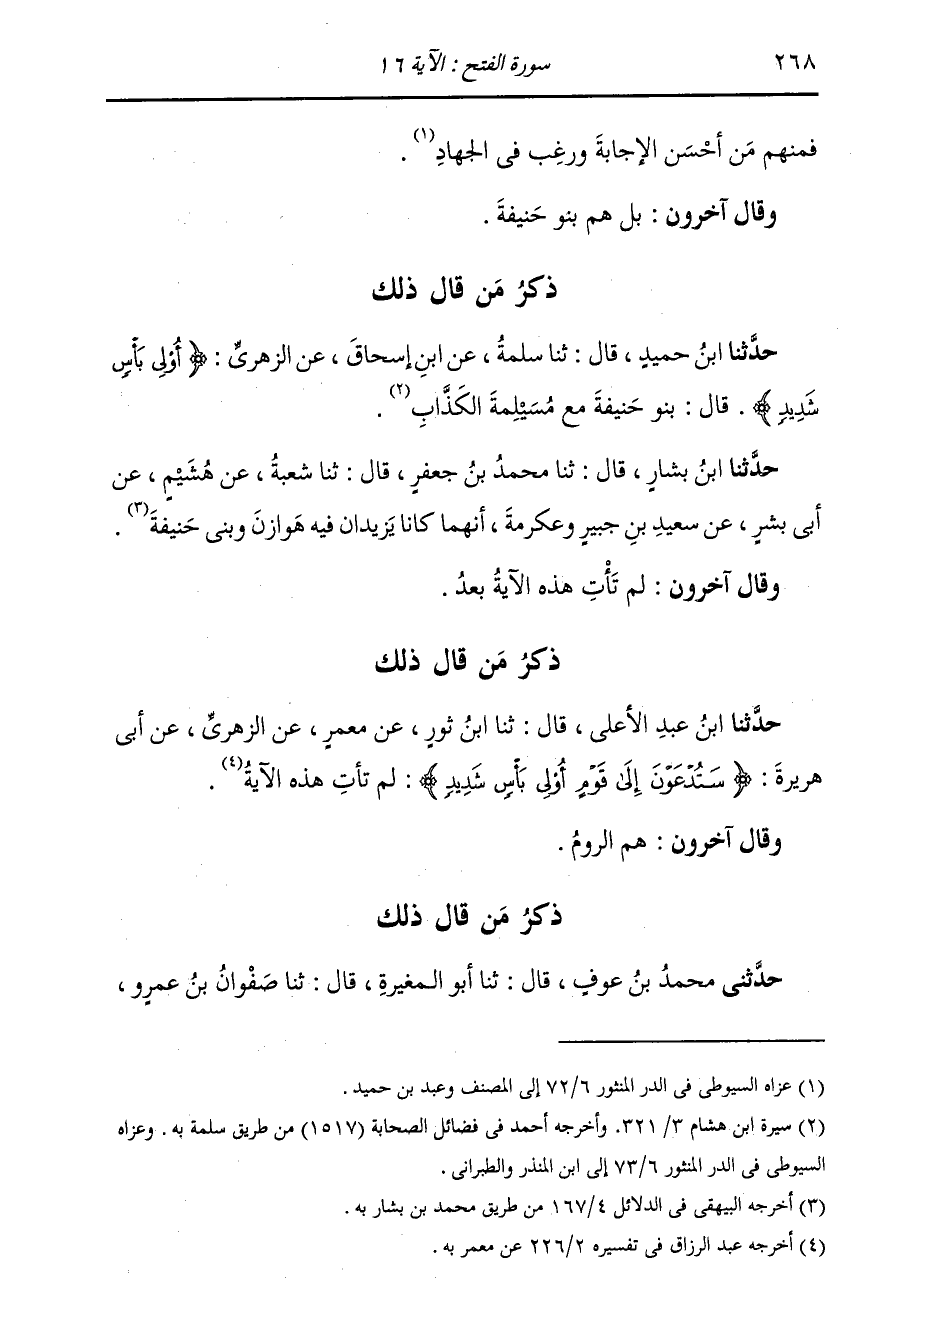 ٢٦٨ سورة الفتح : الآية ١٦
فمنهم مَن أحْسَن الإجابةَ ورغِب فى الجهادِ(١) .
وقال آخرون : بل هم بنو حَنيفةَ .
ذكرُ مَن قال ذلك
حدَّثنا ابنُ حميدٍ ، قال : ثنا سلمةُ ، عن ابنِ إسحاقَ ، عن الزهرىِّ : ﴿ أُوْلِى بَأْسٍ
شَدِيدٍ ﴾ . قال : بنو حَنيفةَ مع مُسَيْلِمةَ الكَذَّابِ(٢) .
حدَّثنا ابنُ بشارٍ ، قال : ثنا محمدُ بنُ جعفرٍ ، قال : ثنا شعبةُ ، عن هُشَيْمٍ ، عن
أبى بشرٍ ، عن سعيدِ بنِ جبيرٍ وعكرمةَ ، أنهما كانا يَزيدان فيه هَوازنَ وبنى حَنيفةَ(٣) .
وقال آخرون : لم تَأْتِ هذه الآيةُ بعدُ .
ذكرُ مَن قال ذلك
حدَّثنا ابنُ عبدِ الأعلى ، قال : ثنا ابنُ ثورٍ ، عن معمرٍ ، عن الزهرىِّ ، عن أبى
هريرةَ : ﴿ سَتُدْعَوْنَ إِلَىٰ قَوْمٍ أُوْلِى بَأْسٍ شَدِيدٍ ﴾ : لم تأتِ هذه الآيةُ(٤) .
وقال آخرون : هم الرومُ .
ذكرُ مَن قال ذلك
حدَّثنى محمدُ بنُ عوفٍ ، قال : ثنا أبو المغيرةِ ، قال : ثنا صَفْوانُ بنُ عمرٍو ،
(١) عزاه السيوطى فى الدر المنثور ٧٢/٦ إلى المصنف وعبد بن حميد .
(٢) سيرة ابن هشام ٣/ ٣٢١. وأخرجه أحمد فى فضائل الصحابة (١٥١٧) من طريق سلمة به . وعزاه
السيوطى فى الدر المنثور ٧٣/٦ إلى ابن المنذر والطبرانى .
(٣) أخرجه البيهقى فى الدلائل ١٦٧/٤ من طريق محمد بن بشار به .
(٤) أخرجه عبد الرزاق فى تفسيره ٢٢٦/٢ عن معمر به .